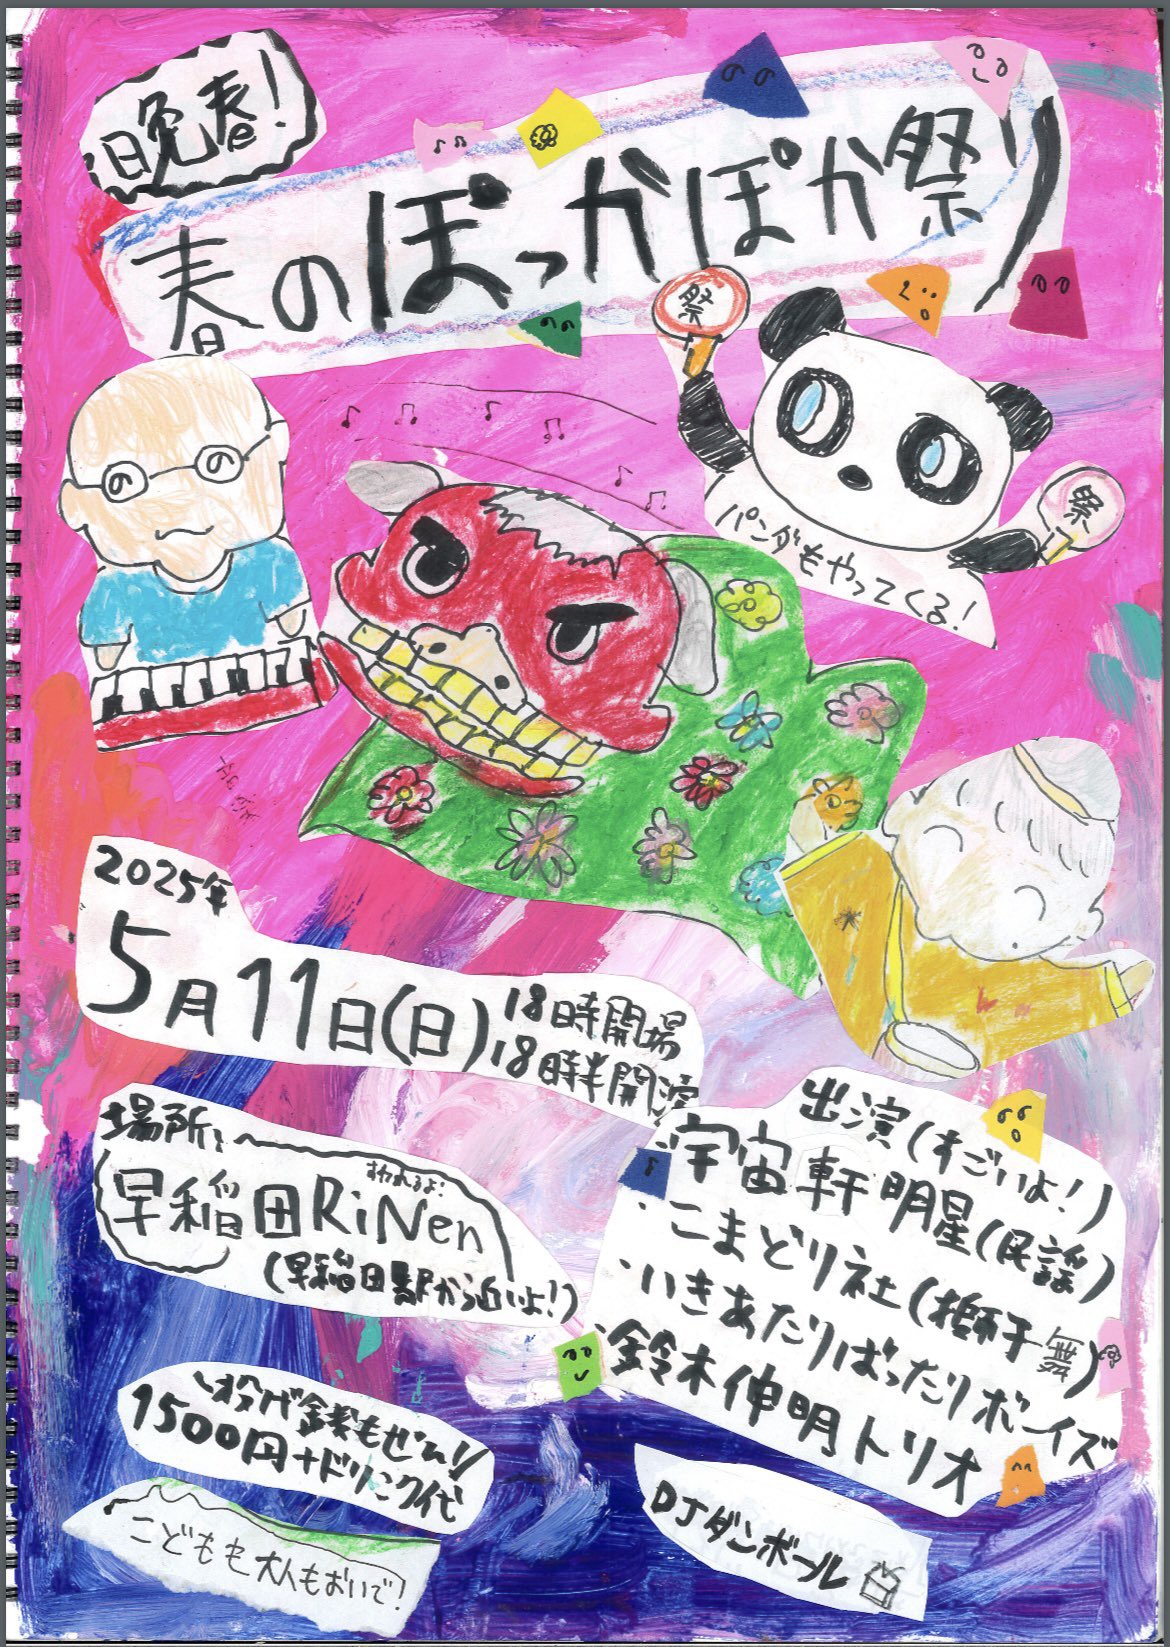 晩春!
春のぽっかぽか祭り
祭
祭
パンダもやってくる!
2025年
5月11日(日)
18時開場
18時半開演
場所:
早稲田RiNen
すわれるよ!
(早稲田駅から近いよ!)
出演(すごいよ!)
・宇宙軒明星(民謡)
・こまどり社(獅子舞)
・いきあたりばったりボーイズ
・鈴木伸明トリオ
\投げ銭もぜひ!/
1500円+ドリンク代
DJダンボール
こどもも大人もおいで!